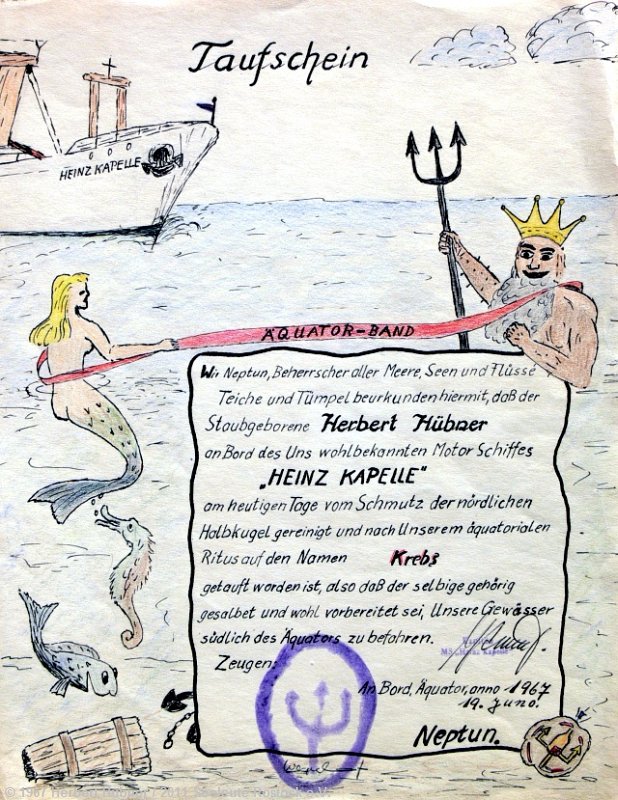 Taufschein
HEINZ KAPELLE
ÄQUATOR-BAND
Wir Neptun, Beherrscher aller Meere, Seen und Flüsse
Teiche und Tümpel beurkunden hiermit, daß der
Staubgeborene Herbert Hübner
an Bord des Uns wohlbekannten Motor Schiffes
„HEINZ KAPELLE"
am heutigen Tage vom Schmutz der nördlichen
Halbkugel gereinigt und nach Unserem äquatorialen
Ritus auf den Namen Krebs
getauft worden ist, also daß der selbige gehörig
gesalbt und wohl vorbereitet sei, Unsere Gewässer
südlich des Äquators zu befahren.
Zeugen:
An Bord, Äquator, anno 1967
19. Juno.
Neptun.
© 1967 Herbert Hübner